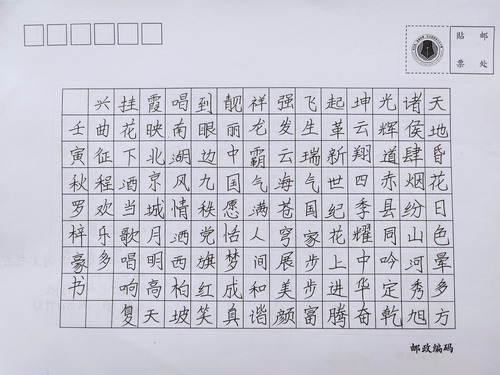 贴邮
票处
天地昏花日色晕多方
诸侯肆烟纷山河秀旭
光辉道赤县同吟定乾
坤云翔四季耀中华奋
起革新世纪花上进腾
飞生瑞气国家步步富
强发云海苍穹展美颜
祥龙霸气满人间和谐
靓丽中国愿恬梦成真
到眼边九秩党旗红笑
唱南湖风情洒西柏坡
霞映北京城月明高天
挂花下洒当歌唱响复
兴曲征程欢乐多
壬寅秋罗梓豪书
邮政编码